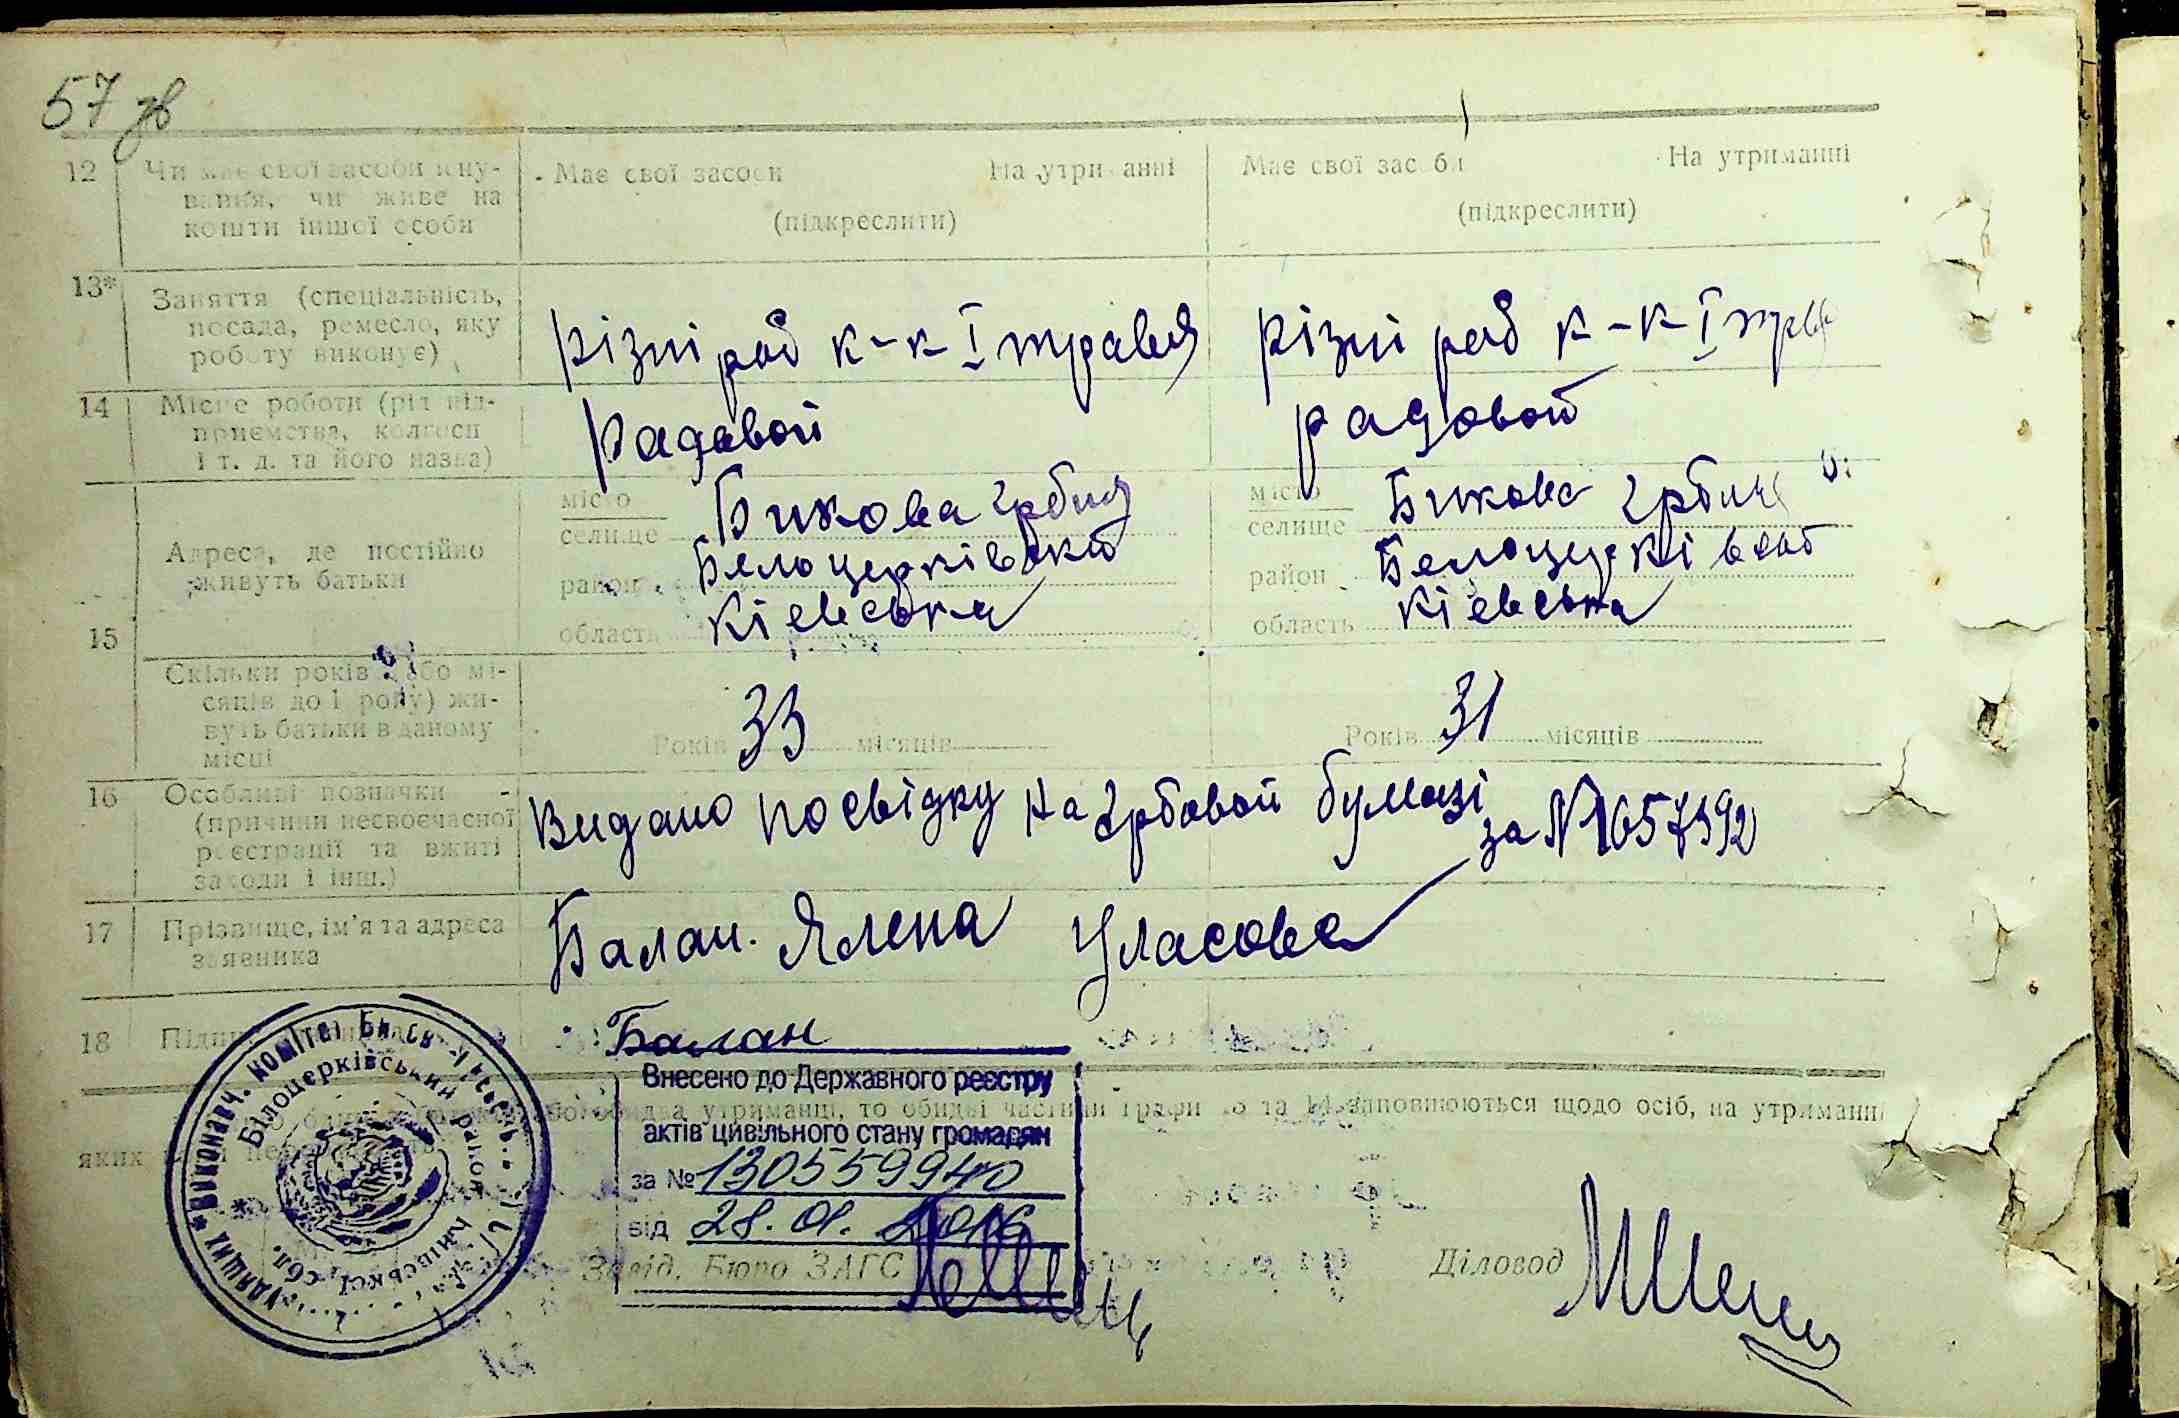 57 зв
12 Чи має свої засоби існу- Має свої засоби На утриманні Має свої засоби На утриманні
вання, чи живе на
кошти іншої особи (підкреслити) (підкреслити)
13* Заняття (спеціальність,
посада, ремесло, яку
роботу виконує) Різні роб к-к І травня Різні роб к-к І трав
14 Місце роботи (рід під-
приємства, колгосп
і т. д. та його назва) Радавой радовой
місто селище Бикова гребля місто селище Бикова гребля
15 Адреса, де постійно
живуть батьки район Белоцерківский район Белоцерківской
область Кіевська область Кіевська
Скільки років (або мі-
сяців до 1 року) жи-
вуть батьки в даному
місці Років 33 місяців Років 31 місяців
16 Особливі позначки
(причини несвоєчасної
реєстрації та вжиті
заходи і інш.) Видано посвідку на грбовой бумазі за №
17 Прізвище, ім'я та адреса
заявника Балан Ялена Уласова
18 Балан
Внесено до Державного реєстру
актів цивільного стану громадян
за № 130559940
від 28.01.2016
утриманці, то обидві частини графи та 14 заповнюються щодо осіб, на утриманні
яких
Завід. Бюро ЗАГС Діловод
Виконавч. Комітет
Білоцерківський район Київської обл.